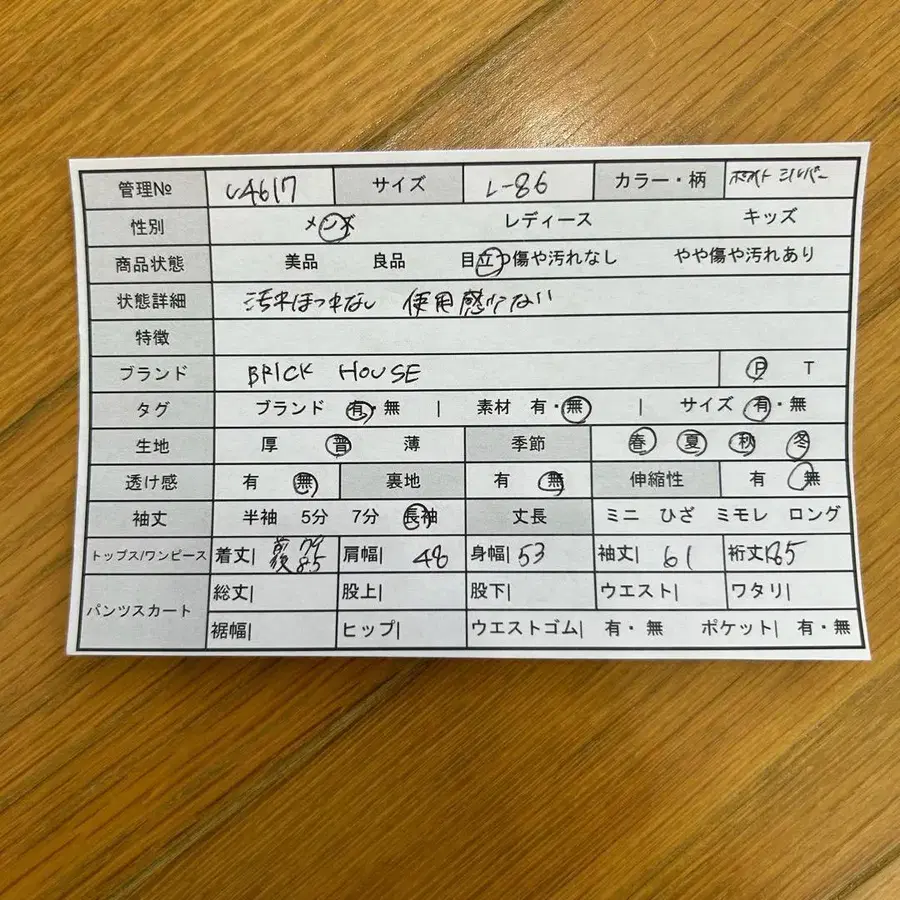 管理№ U4617 サイズ L-86 カラー・柄 ホワイト シルバー
性別 メンズ レディース キッズ
商品状態 美品 良品 目立つ傷や汚れなし やや傷や汚れあり
状態詳細 汚れほつれなし 使用感少ない
特徴
ブランド BRICK HOUSE P T
タグ ブランド 有・無 | 素材 有・無 | サイズ 有・無
生地 厚 普 薄 季節 春 夏 秋 冬
透け感 有 無 裏地 有 無 伸縮性 有 無
袖丈 半袖 5分 7分 長袖 丈長 ミニ ひざ ミモレ ロング
トップス/ワンピース 着丈| 前79 後85 肩幅| 48 身幅| 53 袖丈| 61 裄丈| 85
パンツスカート 総丈| 股上| 股下| ウエスト| ワタリ|
裾幅| ヒップ| ウエストゴム| 有・無 ポケット| 有・無